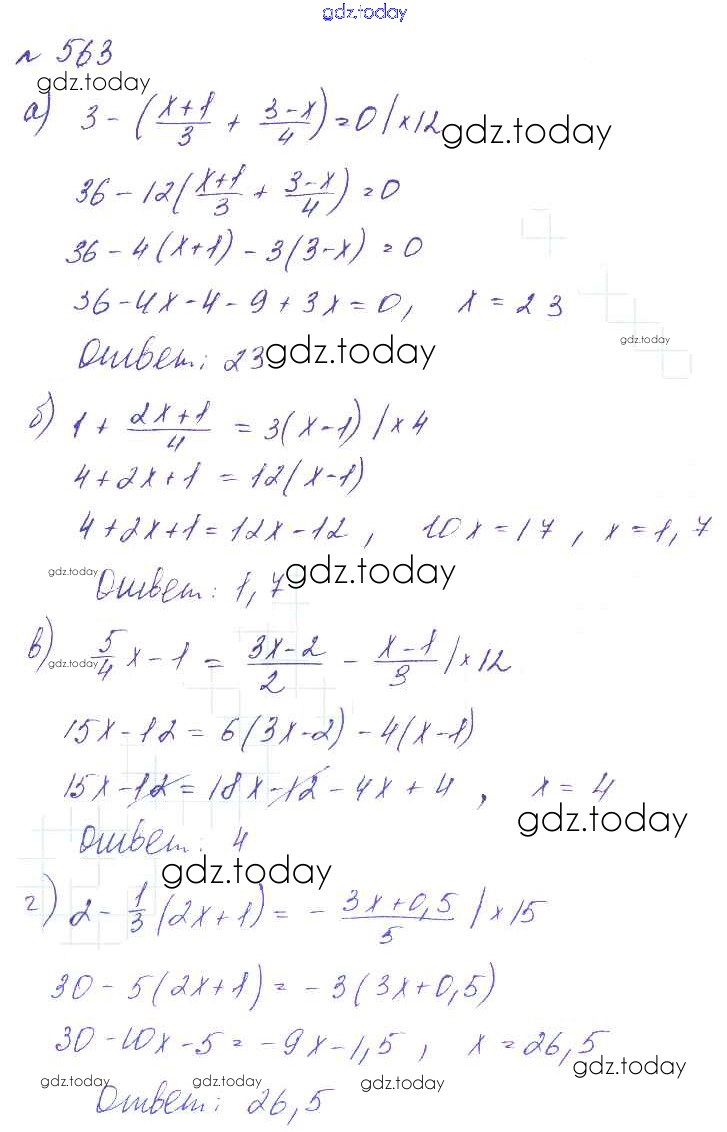 gdz.today
№ 563
gdz.today
а) 3 - (x+1/3 + 3-x/4) = 0 | ×12 gdz.today
36 - 12(x+1/3 + 3-x/4) = 0
36 - 4(x+1) - 3(3-x) = 0
36 - 4x - 4 - 9 + 3x = 0, x = 23
gdz.today
Ответ: 23 gdz.today
б) 1 + 2x+1/4 = 3(x-1) | ×4
4 + 2x + 1 = 12(x-1)
4 + 2x + 1 = 12x - 12, 10x = 17, x = 1,7
gdz.today Ответ: 1,7 gdz.today
в) 5/4 x - 1 = 3x-2/2 - x-1/3 | ×12
gdz.today
15x - 12 = 6(3x-2) - 4(x-1)
15x - 12 = 18x - 12 - 4x + 4, x = 4
gdz.today
Ответ: 4
gdz.today
г) 2 - 1/3 (2x+1) = - 3x+0,5/5 | ×15
30 - 5(2x+1) = -3(3x+0,5)
30 - 10x - 5 = -9x - 1,5, x = 26,5
gdz.today
gdz.today gdz.today gdz.today
Ответ: 26,5